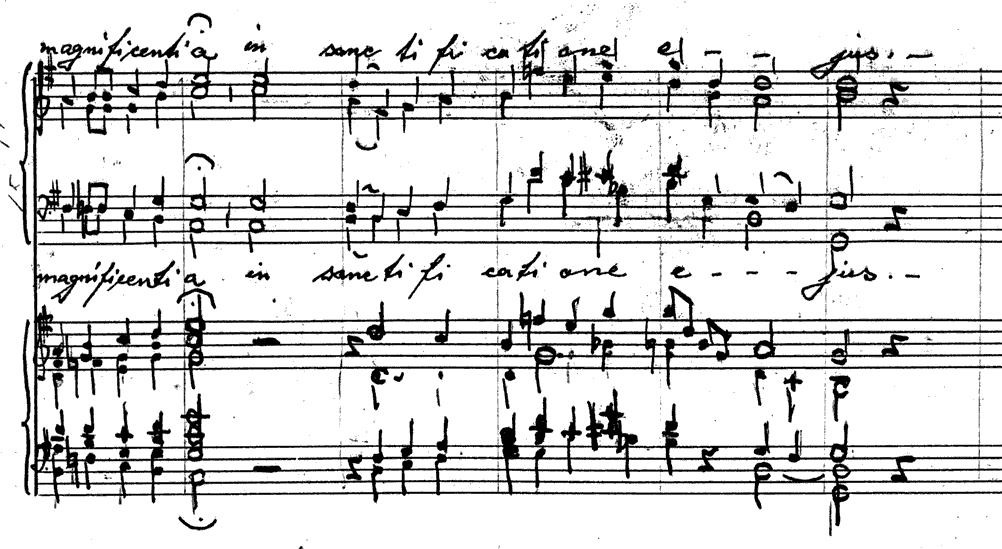 magnificentia in sanc ti fi ca ti one e - - jus. -
magnificentia in sancti fi cati one e - - - jus. -